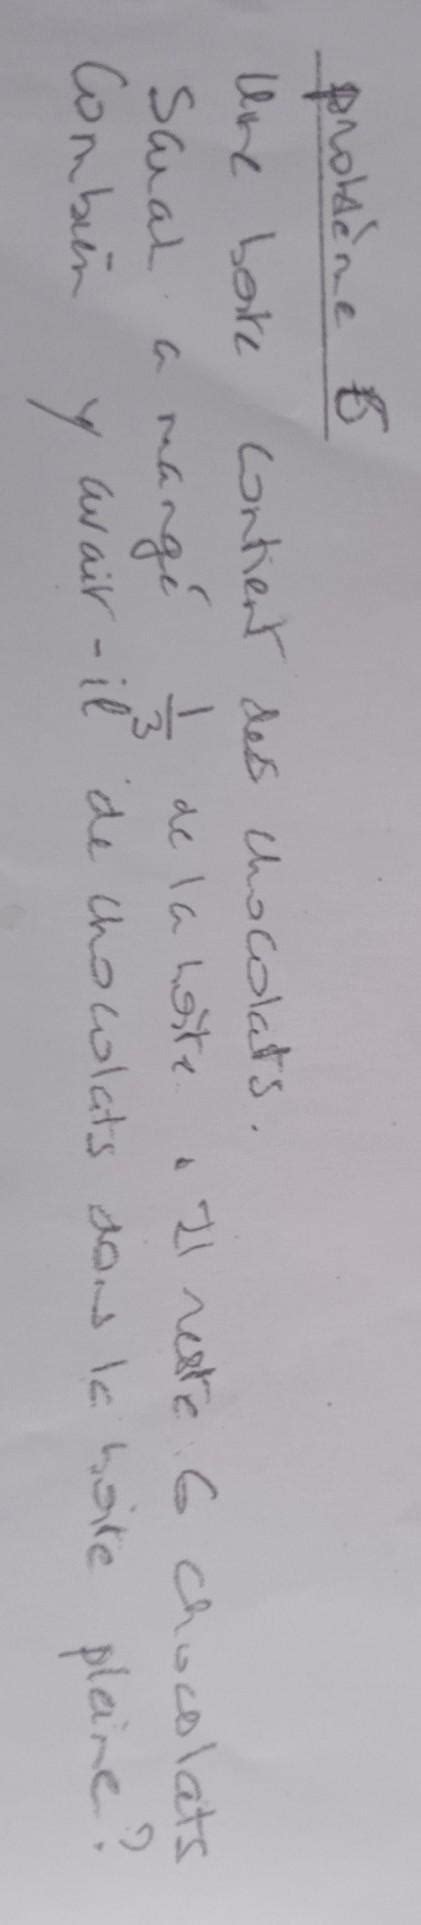 problème 5
Une boite contient des chocolats.
Sarah a mangé 1/3 de la boîte. Il reste 6 chocolats
Combien y avait-il de chocolats dans la boîte plaine?